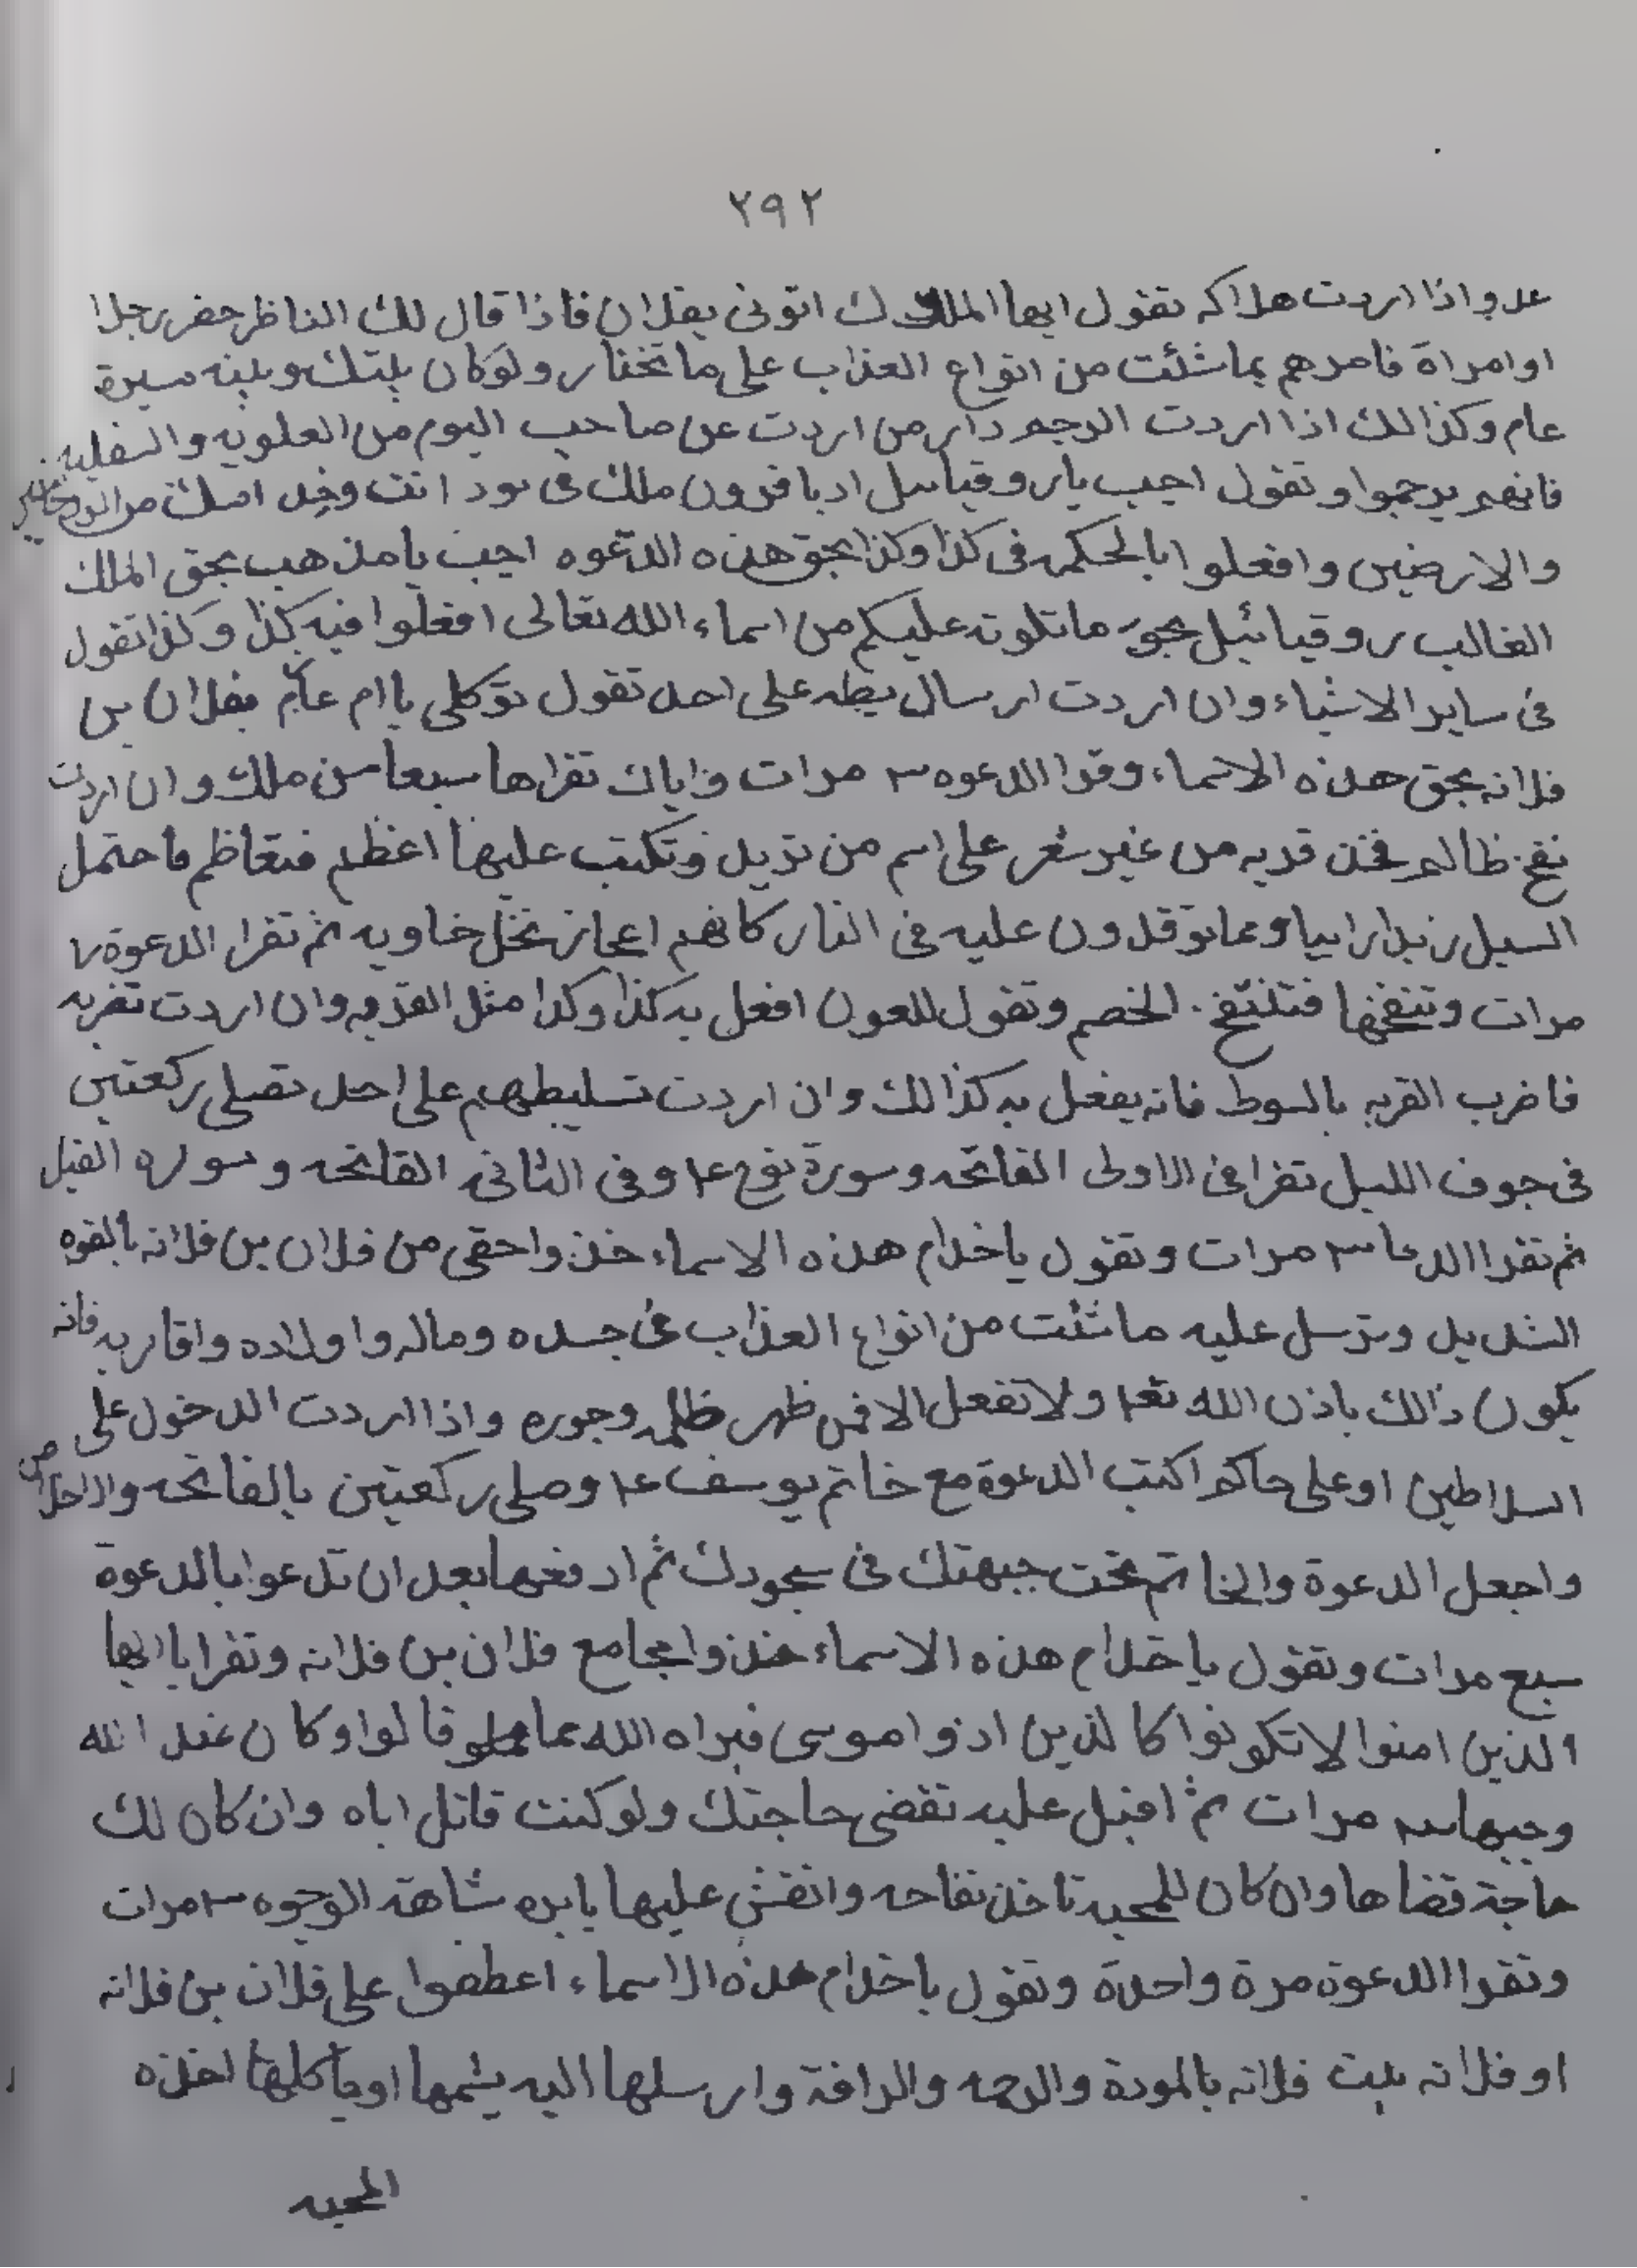 ٢٩٢
عدو واذا اردت هلاكه تقول ايها الملك اتونى بفلان فاذا قال لك الناظر حضر رجلا
او امراة فامرهم بما شئت من انواع العذاب على ما تختار ولو كان بينك وبينه مسيرة
عام وكذالك اذا اردت الرجم دار من اردت عن صاحب اليوم من العلويه والسفليه
فانهم يرجموا وتقول اجب يا روقيائيل ملك انت وخدامك من
والارضين وافعلوا بالحكمه فى كذا وكذا بحق هذه الدعوه اجب يا مذهب بحق الملك
الغالب روقيائيل بحق ما تلوته عليكم من اسماء الله تعالى افعلوا فيه كذا وكذا تقول
فى ساير الاشياء وان اردت ارسال على احد تقول توكلى يا ام بفلان بن
فلانه بحق هذه الاسماء وقرا الدعوه ٣ مرات واياك تقراها سبعا ملك وان اردت
نفخ ظالم فخذ قربه من غير شعر على اسم من تريد وتكتب عليها اعظم فتعاظم فاحتمل
السيل زبدا رابيا ومما توقدون عليه فى النار كانهم اعجاز نخل خاويه ثم تقرا الدعوة ٧
مرات وتنفخها فتنتفخ الخصم وتقول للعون افعل به كذا وكذا مثل القربه وان اردت تضربه
فاضرب القربه بالسوط فانه يفعل به كذالك وان اردت تسليطهم على احد تصلى ركعتين
فى جوف الليل تقرا فى الاولى الفاتحه وسورة نوح ع١ وفى الثانى الفاتحه وسوره الفيل
ثم تقرا الدعا ٣ مرات وتقول يا خدام هذه الاسماء خذوا حقى من فلان بن فلانه بالقوه
الشديد وترسل عليه ما شئت من انواع العذاب فى جسده وماله واولاده واقاربه فانه
يكون ذالك باذن الله تعا ولا تفعل الا فمن ظهر ظلمه وجوره واذا اردت الدخول على
السلاطين او على حاكم اكتب الدعوة مع خاتم يوسف ع١ وصلى ركعتين بالفاتحه والاخلاص
واجعل الدعوة والخاتم تحت جبهتك فى سجودك ثم ارفعها بعد ان تدعوا بالدعوة
سبع مرات وتقول يا خدام هذه الاسماء خذوا بمجامع فلان بن فلانه وتقرا يا ايها
الذين امنوا لا تكونوا كالذين اذوا موسى فبراه الله مما قالوا وكان عند الله
وجيها ٣ مرات ثم اقبل عليه تقضى حاجتك ولو كنت قاتل اباه وان كان لك
حاجة قضاها وان كان للمحبه تاخذ تفاحه وانقش عليها بابره شاهة الوجوه ٣ مرات
وتقرا الدعوة مرة واحدة وتقول يا خدام هذه الاسماء اعطفوا على فلان بن فلانه
او فلانه بنت فلانه بالمودة والرحمه والرافة وارسلها اليه يشمها او ياكلها اخذه
المحبه